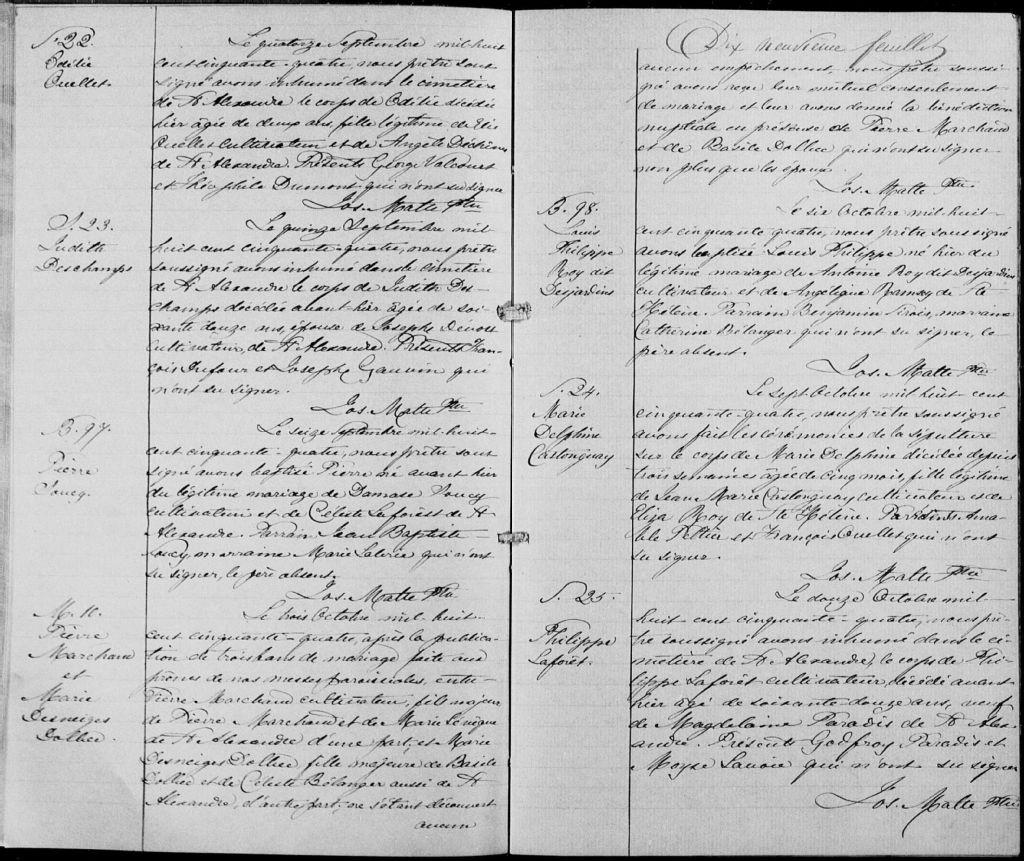 S. 22.
Odilie
Ouellet.
Le quatorze Septembre mil huit
cent cinquante-quatre, nous prêtre sous
signé avons inhumé dans le cimetière
de St Alexandre le corps de Odilie décédée
hier âgée de deux ans, fille légitime de Elie
Ouellet cultivateur et de Angèle Déchènes
de St Alexandre. Présents George Valcourt
et Théophile Dumont qui n'ont su signer
Jos. Malte Ptre
S. 23.
Judith
Deschamps
Le quinze Septembre mil
huit cent cinquante-quatre, nous prêtre
soussigné avons inhumé dans le cimetière
de St Alexandre le corps de Judith Des-
champs décédée avant-hier âgée de soi-
xante douze ans, épouse de Joseph
cultivateur, de St Alexandre. Présents Fran-
çois Dufour et Joseph Gauvin qui
n'ont su signer.
Jos. Malte Ptre
B. 97.
Pierre
Soucy.
Le seize Septembre mil-huit-
cent cinquante-quatre, nous prêtre sous
signé avons baptisé Pierre né avant hier
du légitime mariage de Damase Soucy
cultivateur et de Celeste Laforest de St
Alexandre. Parrain Jean Baptiste
Soucy, marraine Marie qui n'ont
su signer, le père absent.
Jos. Malte Ptre
M. 11.
Pierre
Marchand
et
Marie
Desneiges
Dollec.
Le trois Octobre mil huit-
cent cinquante-quatre, après la publica-
tion de trois bans de mariage faite aux
prônes de nos messes paroissiales, entre
Pierre Marchand cultivateur, fils majeur
de Pierre Marchand et de Marie Levêque
de St Alexandre d'une part, et Marie
Desneiges Dollec, fille majeure de Basile
Dollec et de Celeste Bélanger aussi de St
Alexandre, d'autre part; ne s'étant découvert
aucun
Dix neuvième feuillet
aucun empêchement, nous prêtre soussi-
gné avons reçu leur mutuel consentement
de mariage et leur avons donné la bénédiction
nuptiale en présence de Pierre Marchand
et de Basile Dollec qui n'ont su signer
non plus que les époux.
Jos. Malte Ptre
B. 98.
Louis
Philippe
Roy dit
Desjardins
Le six Octobre mil huit-
cent cinquante quatre, nous prêtre soussigné
avons baptisé Louis Philippe né hier du
légitime mariage de Antoine Roy dit Desjardins
cultivateur et de Angélique Ramsay de Ste
Hélène. Parrain Benjamin Sirois, marraine
Catherine Bélanger qui n'ont su signer, le
père absent.
Jos. Malte Ptre
S. 24.
Marie
Delphine
Castonguay
Le sept Octobre mil huit cent
cinquante-quatre, nous prêtre soussigné
avons fait les cérémonies de la sépulture
sur le corps de Marie Delphine décédée depuis
trois semaines âgée de cinq mois, fille légitime
de Jean Marie Castonguay cultivateur et de
Eliza Roy de Ste Hélène. Présents Ama-
ble Pettie et François Ouellet qui n'ont
su signer.
Jos. Malte Ptre
S. 25.
Philippe
Laforêt.
Le douze Octobre mil-
huit-cent cinquante-quatre, nous prê-
tre soussigné avons inhumé dans le ci-
metière de St Alexandre, le corps de Phi-
lippe Laforêt cultivateur, décédé avant-
hier âgé de soixante douze ans, veuf
de Magdelaine Paradis de St Alex-
andre. Présents Godfroy Paradis et
Moyse Lavoie qui n'ont su signer
Jos. Malte Ptre